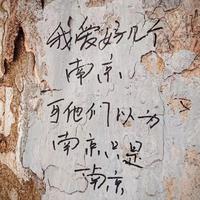 我爱好几个
南京
可他们以为
南京只是
南京